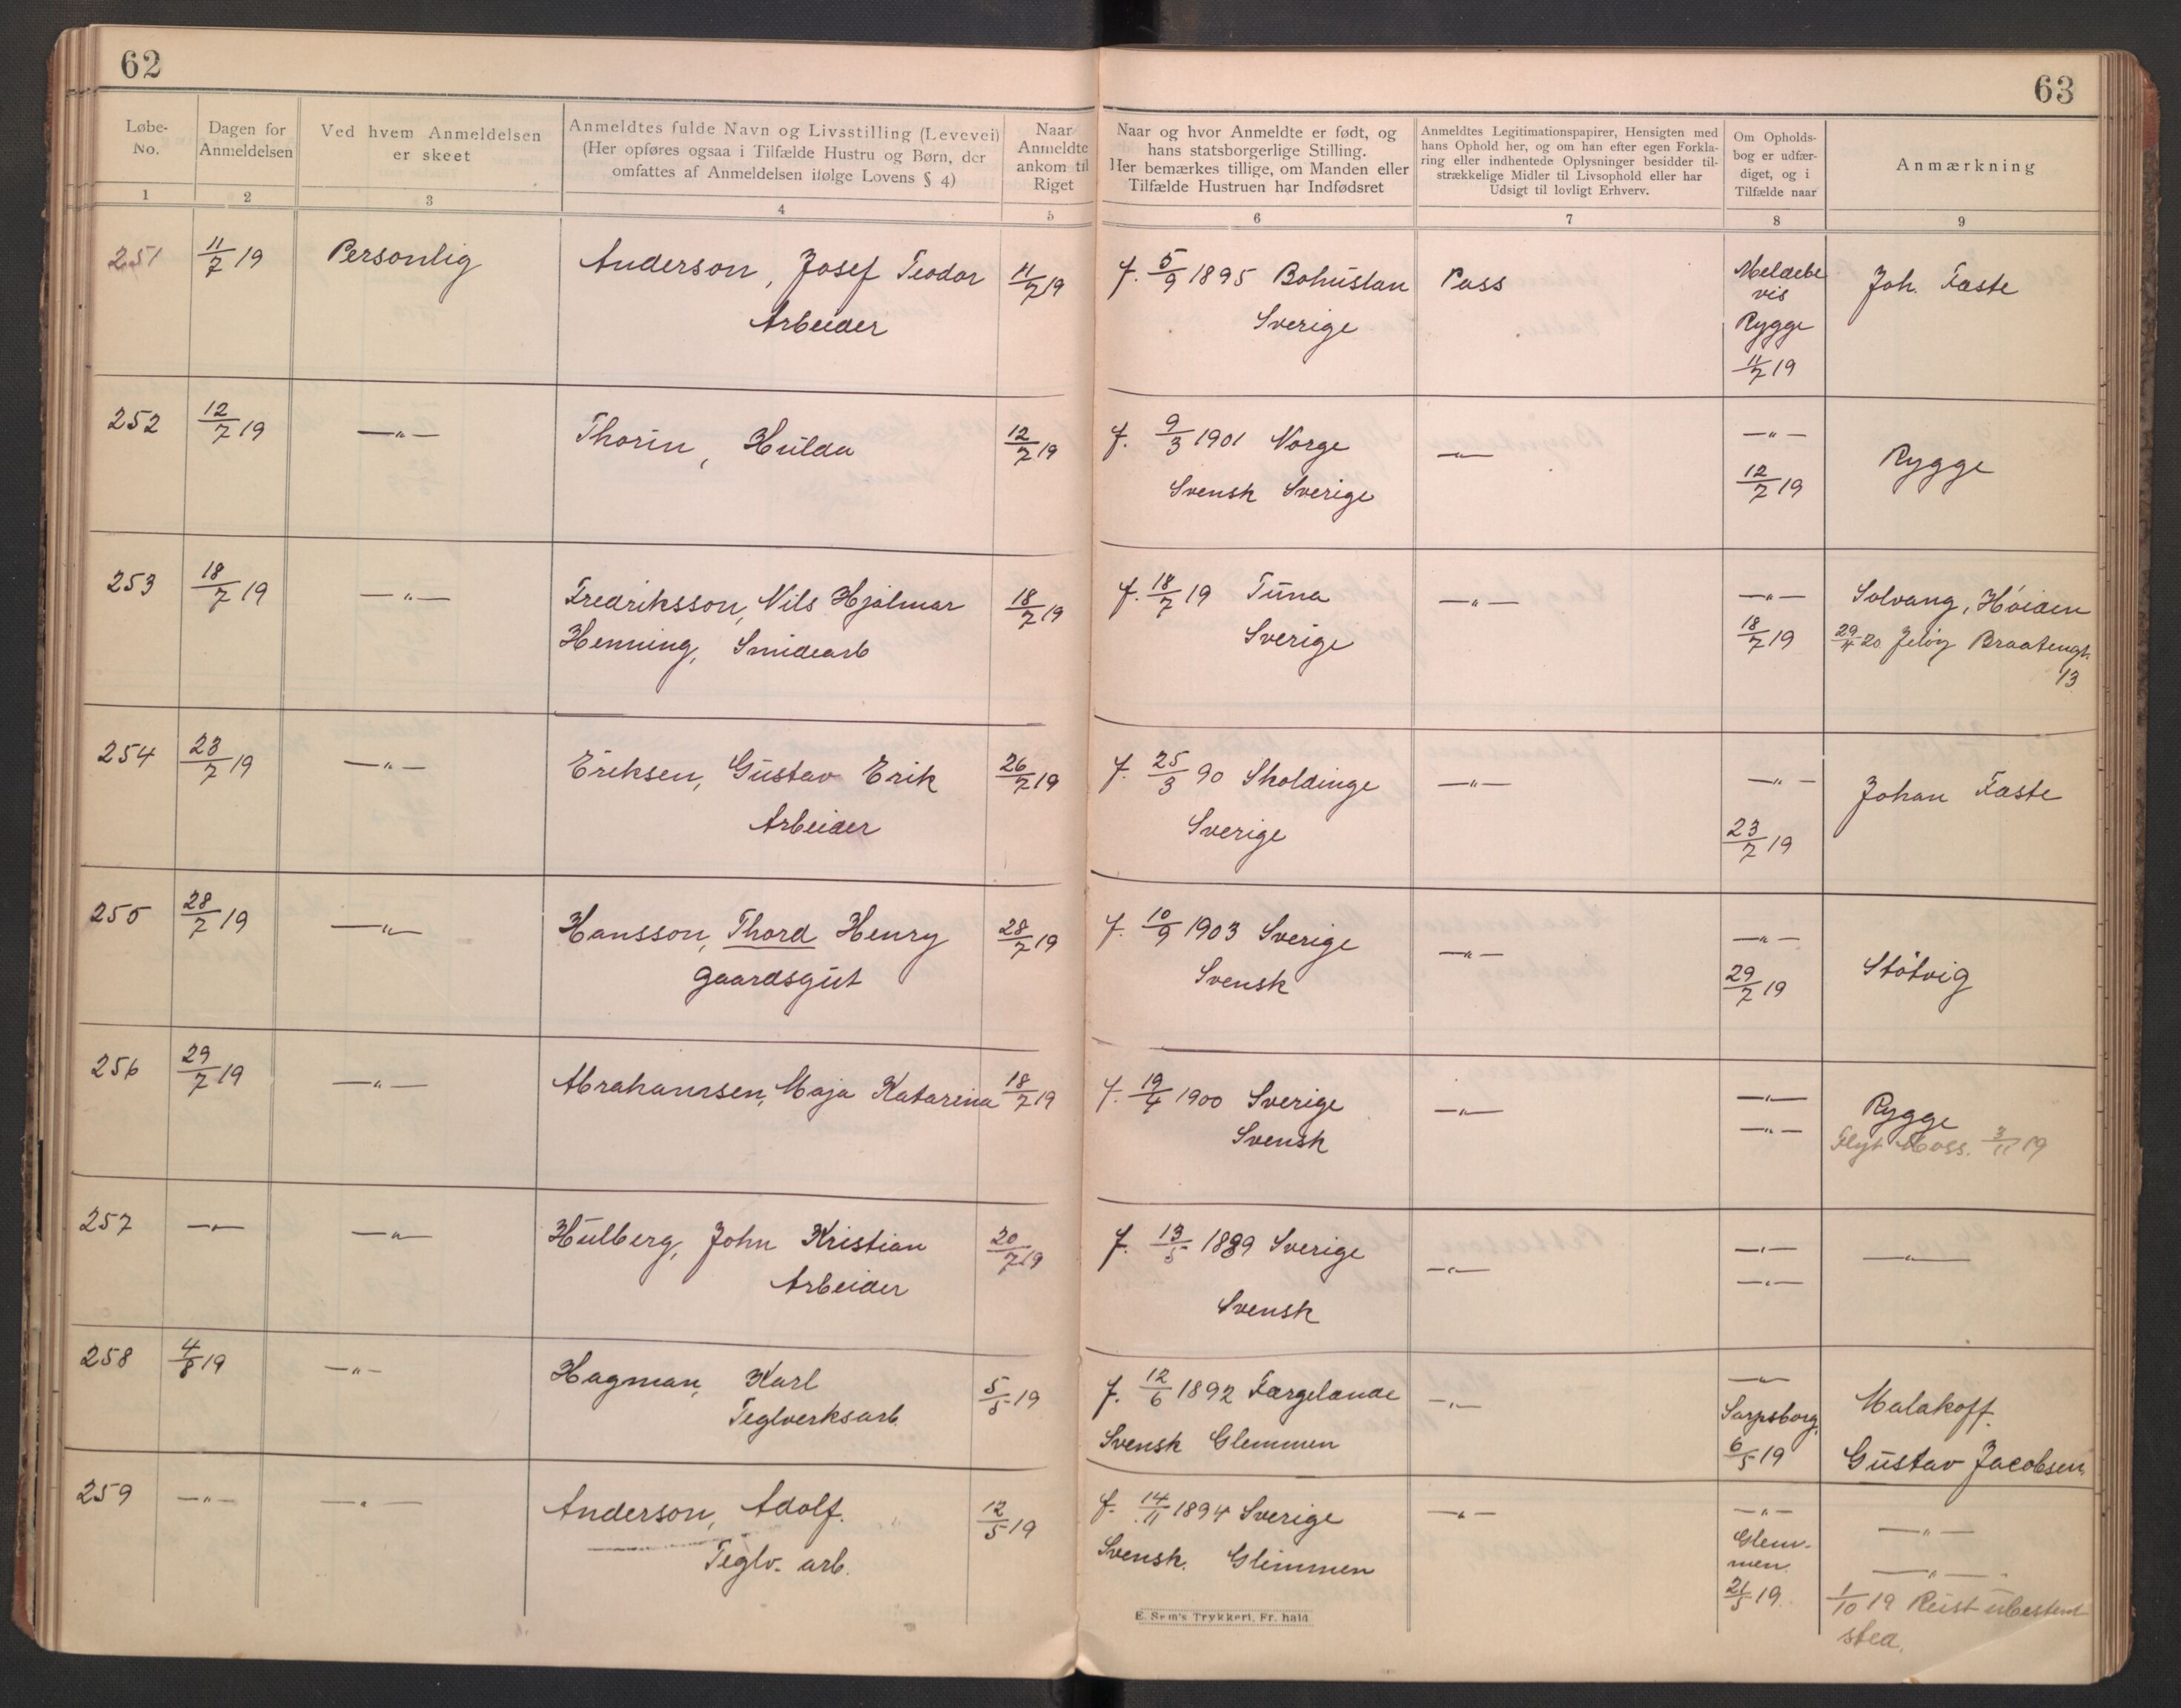 62
63
Løbe-No.
Dagen for Anmeldelsen
Ved hvem Anmeldelsen er skeet
Anmeldtes fulde Navn og Livsstilling (Levevei)
(Her opføres ogsaa i Tilfælde Hustru og Børn, der
omfattes af Anmeldelsen ifølge Lovens § 4)
Naar Anmeldte ankom til Riget
Naar og hvor Anmeldte er født, og
hans statsborgerlige Stilling.
Her bemærkes tillige, om Manden eller
Tilfælde Hustruen har Indfødsret
Anmeldtes Legitimationspapirer, Hensigten med
hans Ophold her, og om han efter egen Forkla-
ring eller indhentede Oplysninger besidder til-
strækkelige Midler til Livsophold eller har
Udsigt til lovligt Erhverv.
Om Opholds-
bog er udfær-
diget, og i
Tilfælde naar
Anmærkning
1 2 3 4 5 6 7 8 9
251 11/7 19 Personlig Anderson, Josef Teodor 11/7 19 f. 5/9 1895 Bohuslan Pass Meldebe Joh. Faste
Arbeider Sverige vis
Rygge
11/7 19
252 12/7 19 —„— Thorin, Hulda 12/7 19 f. 9/3 1901 Norge —„— —„— Rygge
Svensk Sverige 12/7 19
253 18/7 19 —„— Fredriksson, Nils Hjalmar 18/7 19 f. 18/7 19 Tuna —„— —„— Solvang, Höiden
Henning, Smidearb Sverige 18/7 19 29/4 20 Jeløy Braatengt.
13
254 23/7 19 —„— Eriksen, Gustav Erik 26/7 19 f. 25/3 90 Skoldinge —„— —„— Johan Faste
Arbeider Sverige 23/7 19
255 28/7 19 —„— Hansson, Thord Henry 28/7 19 f. 10/9 1903 Sverige —„— —„— Stötvig
gaardsgut Svensk 29/7 19
256 29/7 19 —„— Abrahamsen, Maja Katarina 18/7 19 f. 19/4 1900 Sverige —„— —„— Rygge
Svensk —„— Flyt Moss. 3/11 19
257 —„— —„— Hulberg, John Kristian 20/7 19 f. 13/5 1889 Sverige —„— —„— —„—
Arbeider Svensk —„—
258 4/8 19 —„— Hagman, Karl 5/5 19 f. 12/6 1892 Færgelande —„— —„— Malakoff.
Teglverksarb. Svensk Glemmen Sarpsborg. Gustav Jacobsen.
6/5 19
259 —„— —„— Anderson, Adolf. 12/5 19 f. 14/11 1894 Sverige —„— —„— —„—
Teglv. arb. Svensk. Glimmen Glem-
men. —„—
21/5 19. 1/10 19 Reist ubestemt
sted.
E. Sem's Trykkeri, Fr. hald